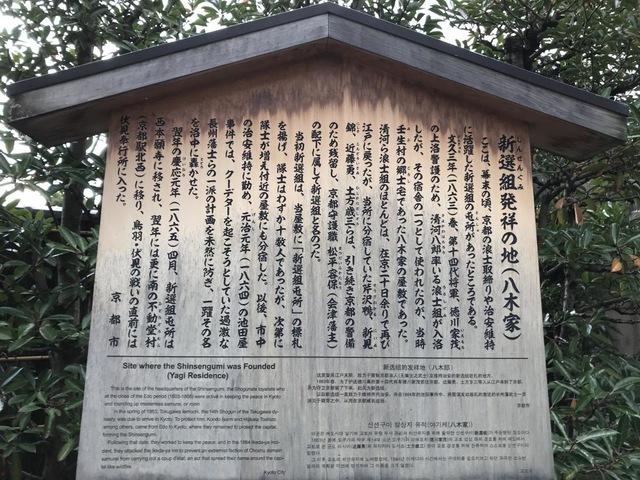 新選組発祥の地(八木家)
しんせんぐみ
ここは、幕末の頃、京都の浪士取締りや治安維持
に活躍した新選組の屯所があったところである。
文久三年(一八六三)春、第十四代将軍、徳川家茂
の上洛警護のため、清河八郎率いる浪士組が入洛
したが、その宿舎の一つとして使われたのが、当時
壬生村の郷士宅であった八木家の屋敷であった。
清河の浪士組のほとんどは、在京二十日余りで再び
江戸に戻ったが、当所に分宿していた芹沢鴨、新見
錦、近藤勇、土方歳三らは、引き続き京都の警備
のため残留し、京都守護職 松平容保(会津藩主)
の配下に属して新選組と名のった。
当初新選組は、当屋敷に「新選組屯所」の標札
を揚げ、隊士はわずか十数人であったが、次第に
隊士が増え付近の屋敷にも分宿した。以後、市中
の治安維持に勤め、元治元年(一八六四)の池田屋
事件では、クーデターを起こそうとしていた過激な
長州藩士らの一派の計画を未然に防ぎ、一躍その名
を洛中に轟かせた。
翌年の慶応元年(一八六五)四月、新選組屯所は
西本願寺に移され、翌年には更に南の不動堂村
(京都駅北西)に移り、鳥羽・伏見の戦いの直前には
伏見奉行所に入った。
京都市
Site where the Shinsengumi was Founded
(Yagi Residence)
This is the site of the headquarters of the Shinsengumi, the Shogunate loyalists who
at the close of the Edo period (1603-1868) were active in keeping the peace in Kyoto
and rounding up masterless samurai, or ronin.
In the spring of 1863, Tokugawa Iemochi, the 14th Shogun of the Tokugawa dy-
nasty, was due to arrive in Kyoto. To protect him, Kondo Isami and Hijikata Toshizo,
among others, came from Edo to Kyoto, where they remained to protect the capital,
forming the Shinsengumi.
Following that date, they worked to keep the peace, and in the 1864 Ikeda-ya Inci-
dent, they attacked the Ikeda-ya inn to prevent an extremist faction of Choshu domain
samurai from carrying out a coup d'état, an act that spread their name around the capi-
tal like wildfire.
Kyoto City
新选组的发祥地(八木邸)
京都市
신선구미 발상지 유적(야기케(八木家))
교토시